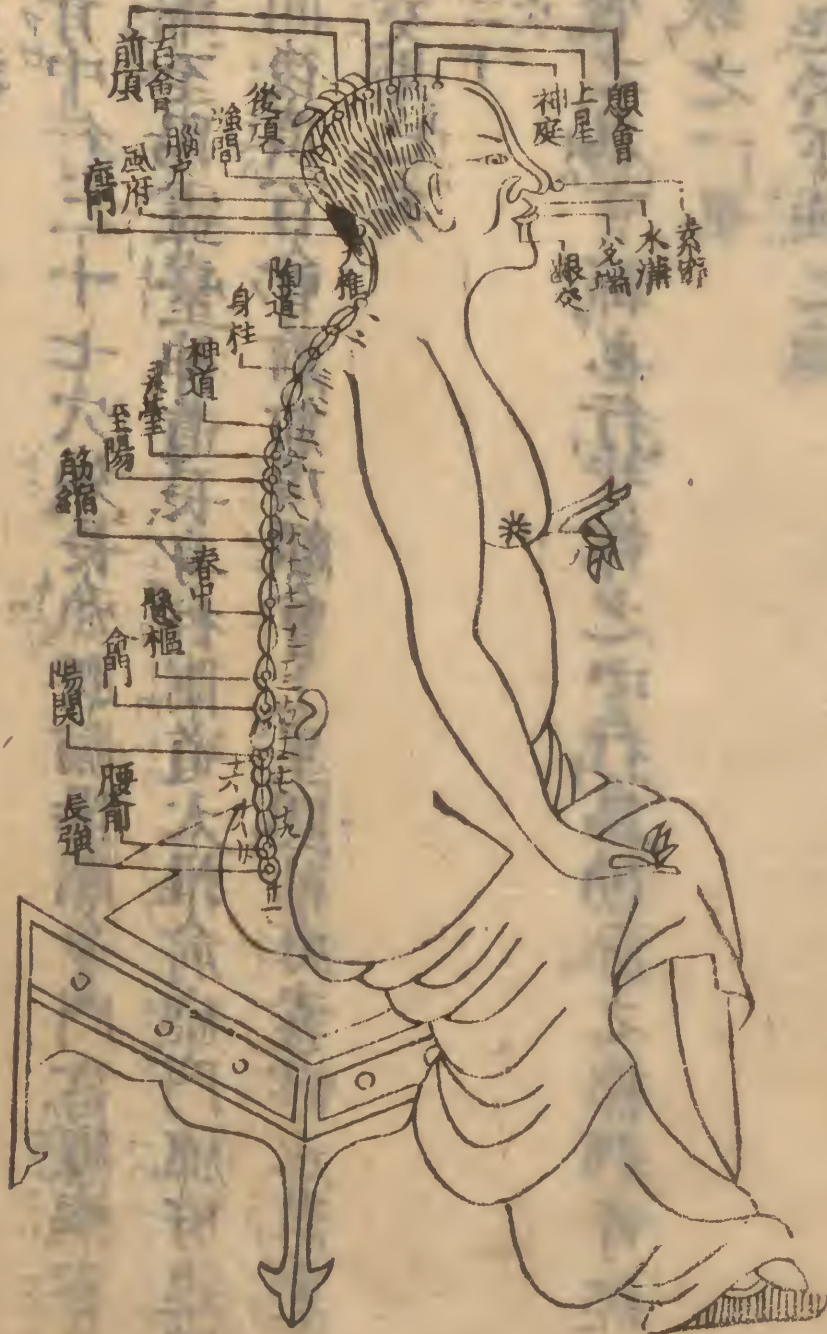 顖會
上星
神庭
素髎
水溝
兌端
齦交
百會
前頂
後頂
強間
腦戶
風府
瘂門
大椎
陶道
身柱
神道
至陽
筋縮
脊中
懸樞
命門
陽関
腰俞
長強
五
六
七
八
九
十
十一
十二
十三
十四
十五
十六
十七
十八
十九
廿